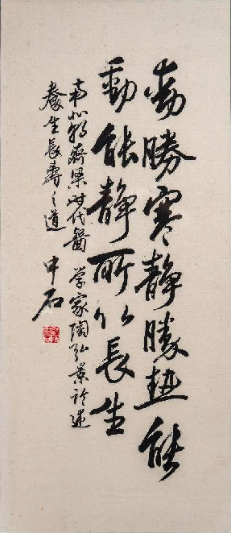 動勝寒靜勝熱能
動能靜所以長生
南北朝齊梁時代醫學家陶弘景論述
養生長壽之道
中石